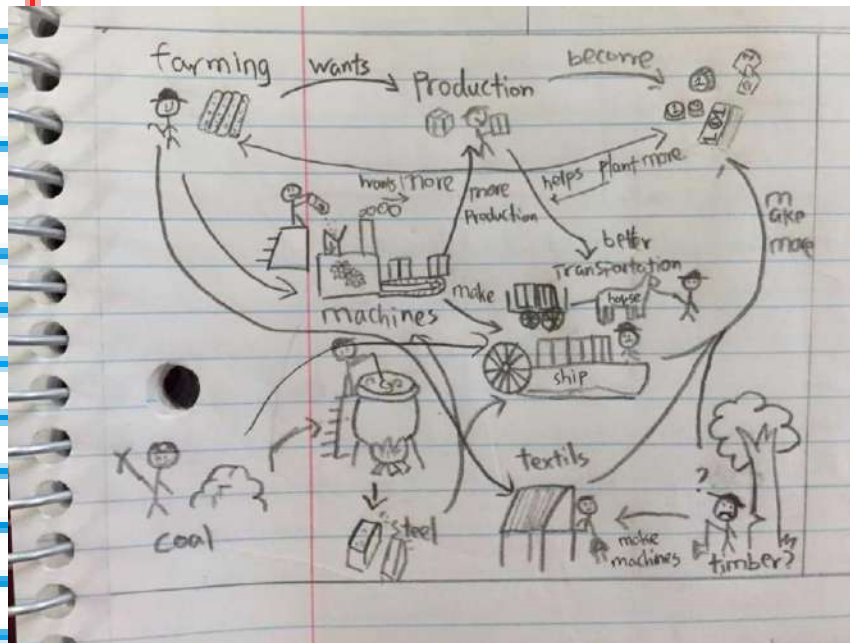 farming
wants
Production
become
wants more
more
Production
helps plant more
make
more
better
Transportation
make
machines
horse
ship
textils
coal
steel
make
machines
?
timber?